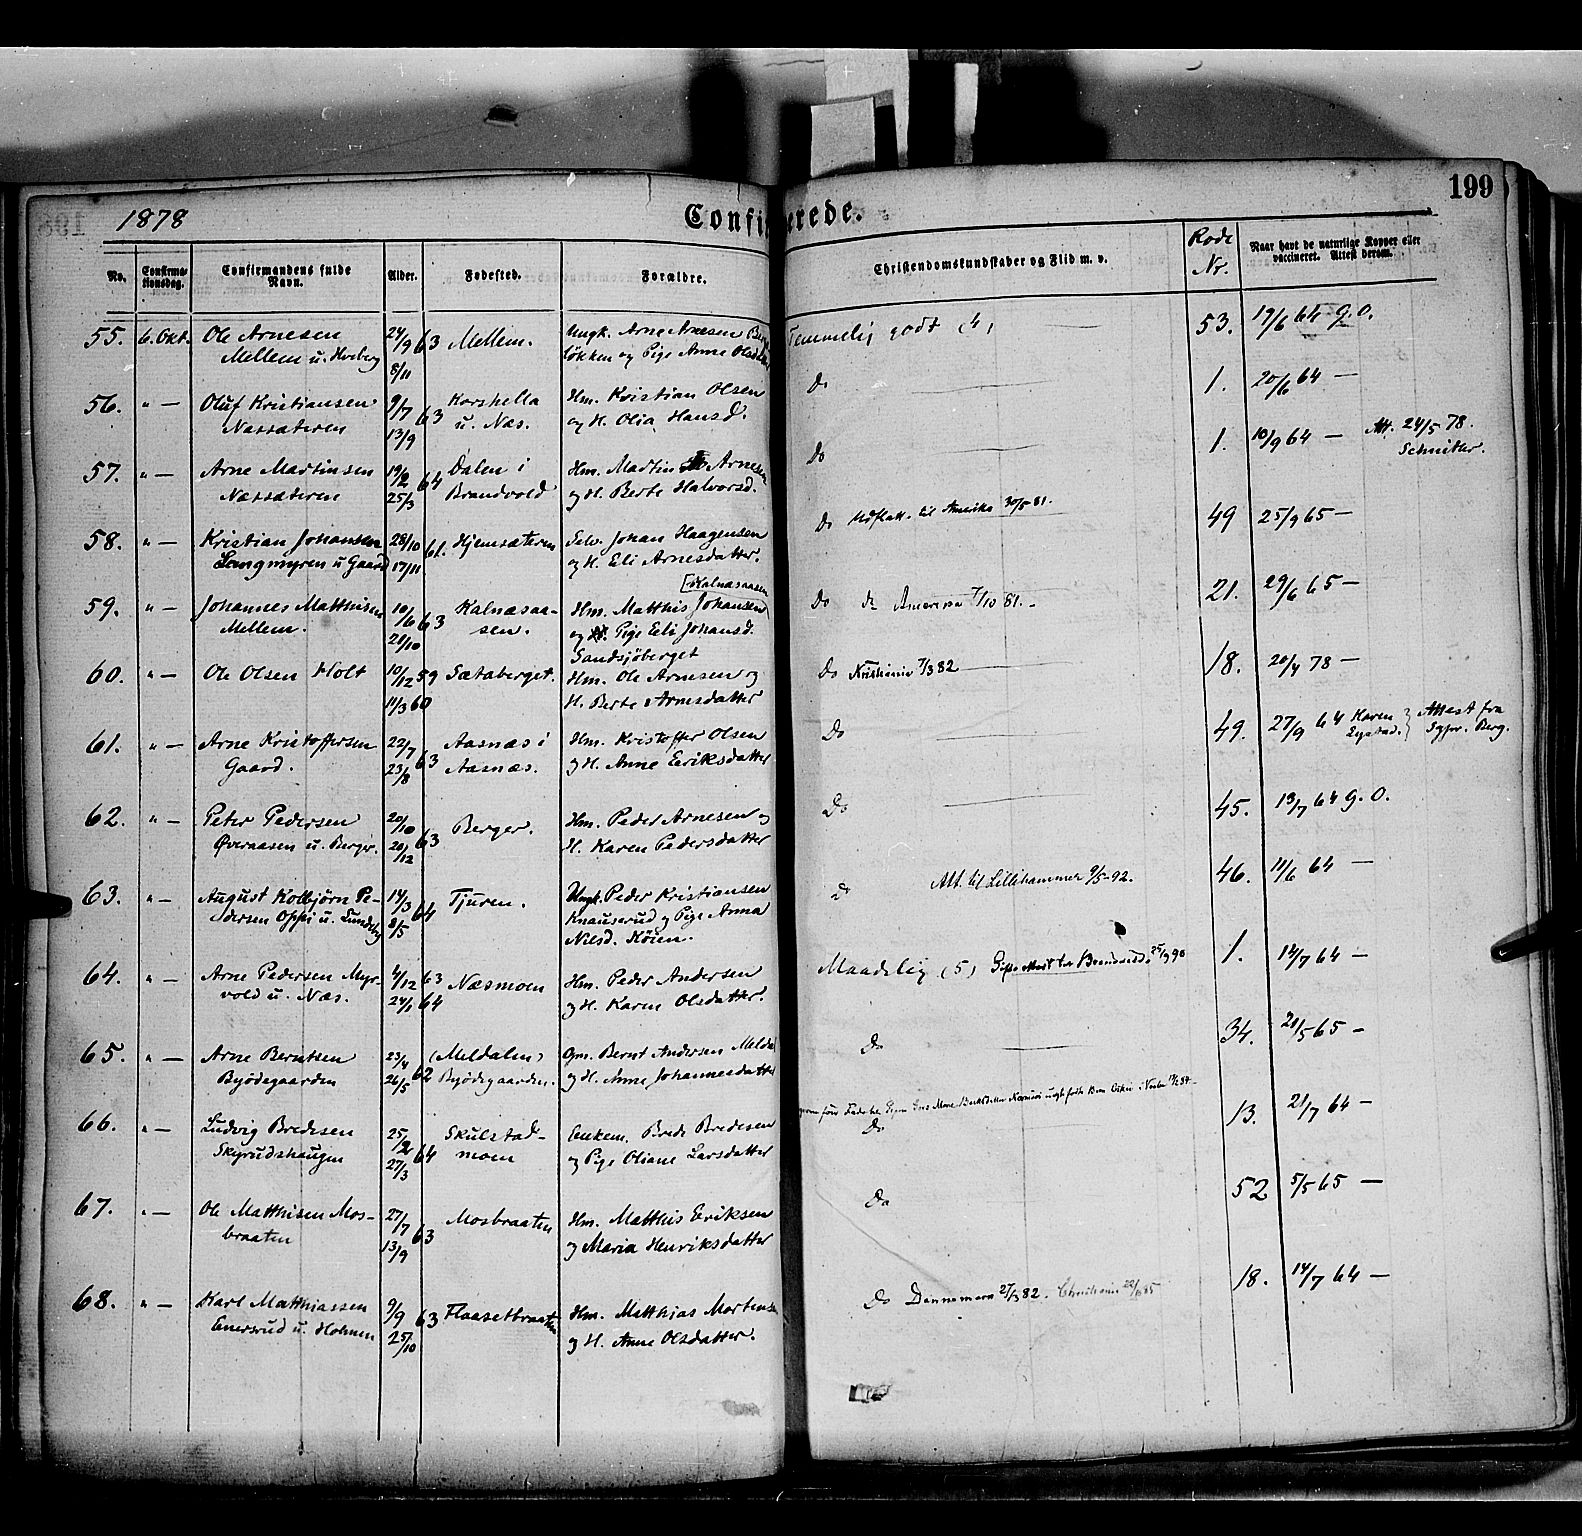 199
1878
Confi erede.
No.
Confirma-
tionsdag.
Confirmandens fulde
Navn.
Alder.
Fødested.
Forældre.
Christendomskundskaber og Flid m. v.
Rode
Nr.
Naar havt de naturlige Kopper eller
vaccineret. Attest derom.
55. 6. Okt. Ole Arnesen 24/9 63 Mellem. Ungk. Arne Arnesen Temmelig godt (4) 53. 19/6 64 g.o.
Mellem u. Horberg 8/11 løkken og Pige Anne
56. " — Oluf Kristiansen 9/7 63 Korshella Hm. Kristian Olsen Do 1. 20/6 64 —
Næssæteren 13/9 u. Næs. og H. Olia Hansd.
57. " — Arne Martinsen 19/2 64 Dalen i Hm. Martin Arnesen Do 1. 10/9 64 — Att. 24/5 78.
Næssæteren 25/3 Brandvold og H. Berte Halvorsd. Schnitler.
58. " — Kristian Johansen 28/10 61. Hjemsæteren Selv. Johan Haagensen Do Udflatt. til Amerika 30/5 81. 49 25/9 65 —
Langmyren u Gaard 17/11 og H. Eli Arnesdatter.
[Kalnæsaasen
59. " — Johannes Matthisen 10/6 63 Kalnæsaa- Hm. Matthis Johansen Do do Amerika 7/10 81. 21. 29/6 65 —
Mellem. 21/10 sen. og Pige Eli Johansd.
Sandsjøberget
60. " — Ole Olsen Holt 10/12 59 Sætaberget. Hm. Ole Arnesen og Do Kristiania 7/3 82 18. 20/4 78 —
11/3 60 H. Berte Arnesdatter
61. " — Arne Kristoffersen 22/7 63 Aasnæs i Hm. Kristoffer Olsen Do 49. 27/9 64 Karen } Attest fra
Gaard. 23/8 Aasnæs. og H. Anne Eriksdatter Sgpr. Berg.
62. " — Peter Pedersen 20/10 63 Berger. Hm. Peder Arnesen og Do 45. 13/7 64 g.o.
Øveraasen u. Berger. 20/12 H. Karen Pedersdatter
63. " — August Kolbjørn Pe- 14/3 64 Tjuren. Ungk. Peder Kristiansen Do Att. til Lillehammer 9/5-92. 46. 11/6 64 —
dersen Oppi u. Lundeby 8/5 Knauserud og Pige Anna
Nilsd. Køien.
64. " — Arne Pedersen Myr- 4/12 63 Næsmoen Hm. Peder Andersen Maadelig (5) 1. 14/7 64 —
vold u. Næs. 24/1 64 og H. Karen Olsdatter.
65. " — Arne Berntsen 23/4 62 (Meldalen) Gm. Bernt Andersen Do 34. 21/5 65 —
Byødegaarden 26/5 Byødegaarden. og H. Anne Johannesdatter
66. " — Ludvig Bredesen 25/2 64 Skulstad- Enkem. Brede Bredesen Do 13. 21/7 64 —
Skyrudshaugen 27/3 moen og Pige Oliane Larsdatter
67. " — Ole Matthisen Mos- 27/7 63 Mosbraaten Hm. Matthis Eriksen Do 52 5/5 65 —
braaten 13/9 og Maria Henriksdatter
68. " — Karl Matthiassen 9/9 63 Flaasetbraaten Hm. Matthias Mortensen Do Dannemora 27/3 82. Christiania 18. 14/7 64 —
Enersrud u. Holmen 25/10 og H. Anne Olsdatter.